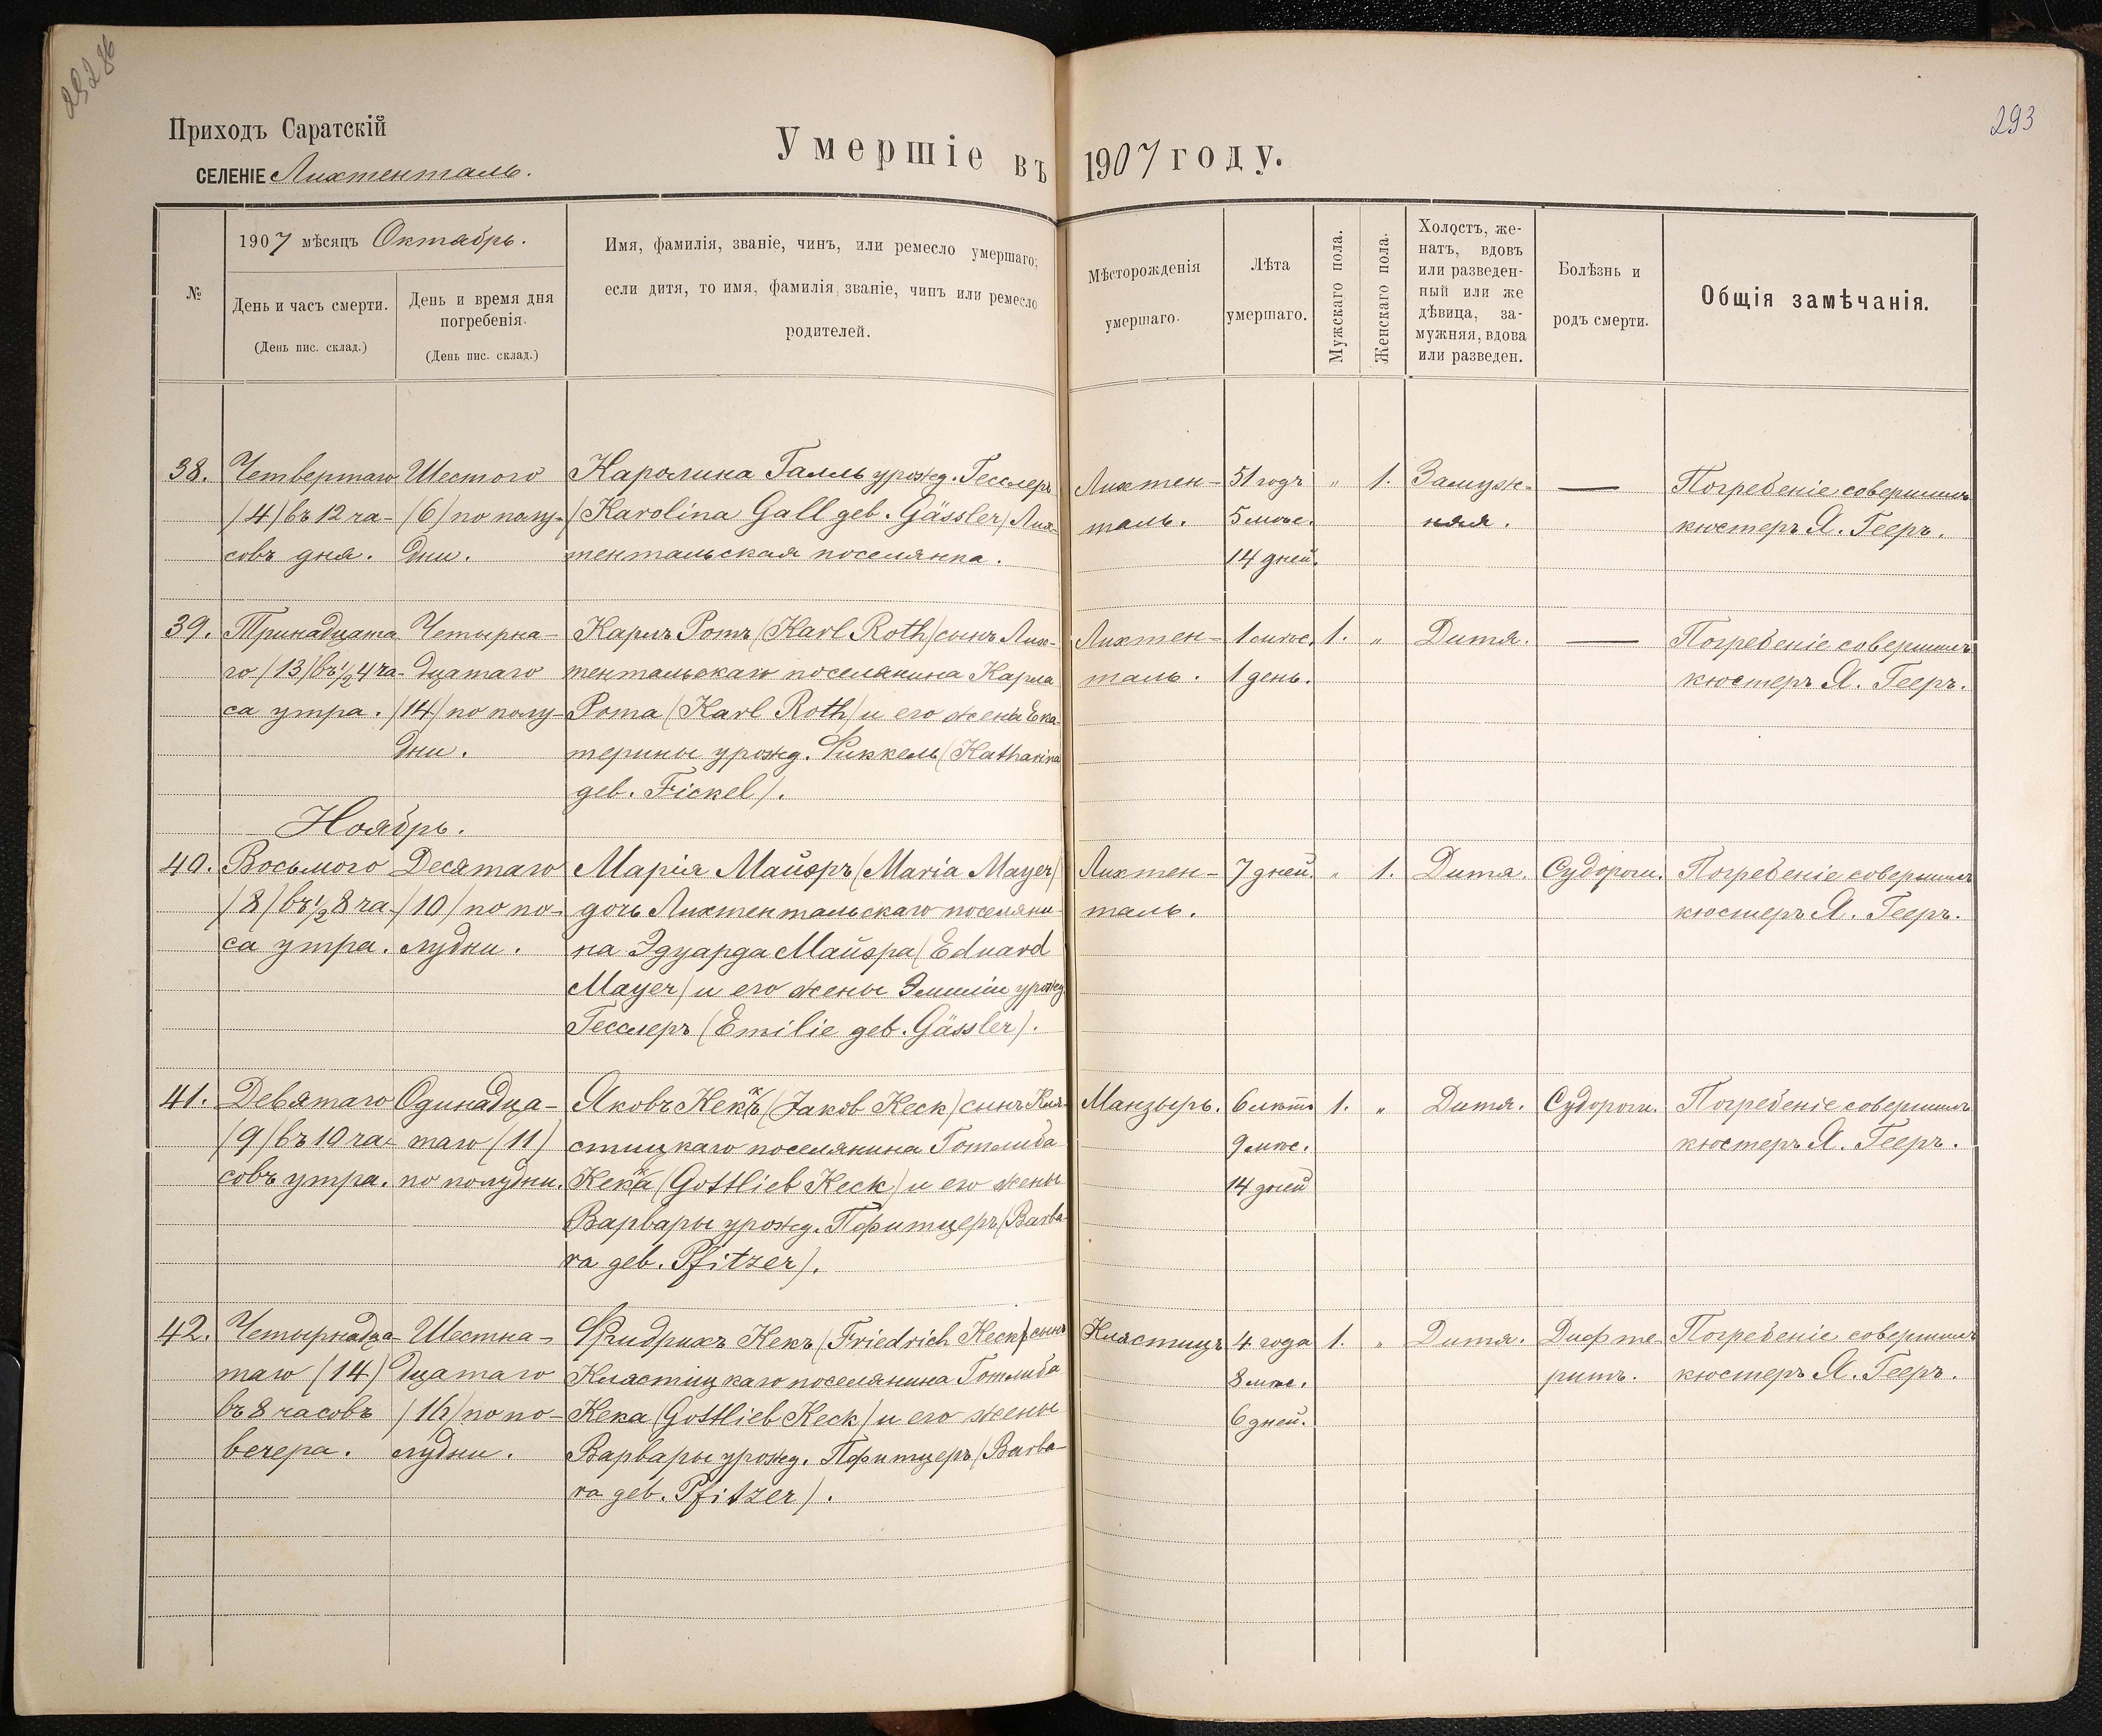 293
Приходъ Саратскій
СЕЛЕНІЕ Лихтенталь.
Умершіе въ 1907 году.
№
1907 мѣсяцъ Октябрь.
День и часъ смерти.
(День пис. склад.)
День и время дня
погребенія.
(День пис. склад.)
Имя, фамилія, званіе, чинъ, или ремесло умершаго;
если дитя, то имя, фамилія, званіе, чинъ или ремесло
родителей.
Мѣсторожденія
умершаго.
Лѣта
умершаго.
Мужскаго пола.
Женскаго пола.
Холостъ, же-
натъ, вдовъ
или разведен-
ный или же
дѣвица, за-
мужняя, вдова
или разведен.
Болѣзнь и
родъ смерти.
Общія замѣчанія.
38.
Четвертаго
(4) въ 12 ча-
совъ дня.
Шестого
(6) по полу-
дни.
Каролина Галль урожд. Гесслеръ
(Karolina Gall geb. Gässler) Лих-
тентальская поселянка.
Лихтен-
таль.
51 годъ
5 мѣс.
14 дней.
"
1.
Замуж-
няя.
—
Погребеніе совершилъ
кюстеръ Я. Гееръ.
39.
Тринадцата
го (13) въ ½ 4 ча-
са утра.
Четырна-
дцатаго
(14) по полу-
дни.
Карлъ Ротъ (Karl Roth) сынъ Лих-
тентальскаго поселянина Карла
Рота (Karl Roth) и его жены Ека-
терины урожд. Фиккель (Katharina
geb. Fickel).
Лихтен-
таль.
1 мѣс.
1 день.
1.
"
Дитя.
—
Погребеніе совершилъ
кюстеръ Я. Гееръ.
Ноябрь.
40.
Восьмого
(8) въ ½ 8 ча-
са утра.
Десятаго
(10) по по-
лудни.
Марія Майэръ (Maria Mayer)
дочь Лихтентальскаго поселяни-
на Эдуарда Майэра (Eduard
Mayer) и его жены Эмиліи урожд.
Гесслеръ (Emilie geb. Gässler).
Лихтен-
таль.
7 дней.
"
1.
Дитя.
Судороги.
Погребеніе совершилъ
кюстеръ Я. Гееръ.
41.
Девятаго
(9) въ 10 ча-
совъ утра.
Одинадца-
таго (11)
по полудни.
Яковъ Кекъ (Jakob Keck) сынъ Кля-
стицкаго поселянина Готлиба
Кека (Gottlieb Keck) и его жены
Варвары урожд. Пфитцеръ (Barba-
ra geb. Pfitzer).
Манзырь.
6 лѣтъ
9 мѣс.
14 дней
1.
"
Дитя.
Судороги.
Погребеніе совершилъ
кюстеръ Я. Гееръ.
42.
Четырнадца-
таго (14)
въ 8 часовъ
вечера.
Шестна-
дцатаго
(16) по по-
лудни.
Фридрихъ Кекъ (Friedrich Keck) сынъ
Клястицкаго поселянина Готлиба
Кека (Gottlieb Keck) и его жены
Варвары урожд. Пфитцеръ (Barba-
ra geb. Pfitzer).
Клястицъ
4 года
8 мѣс.
6 дней.
1.
"
Дитя.
Дифте-
ритъ.
Погребеніе совершилъ
кюстеръ Я. Гееръ.